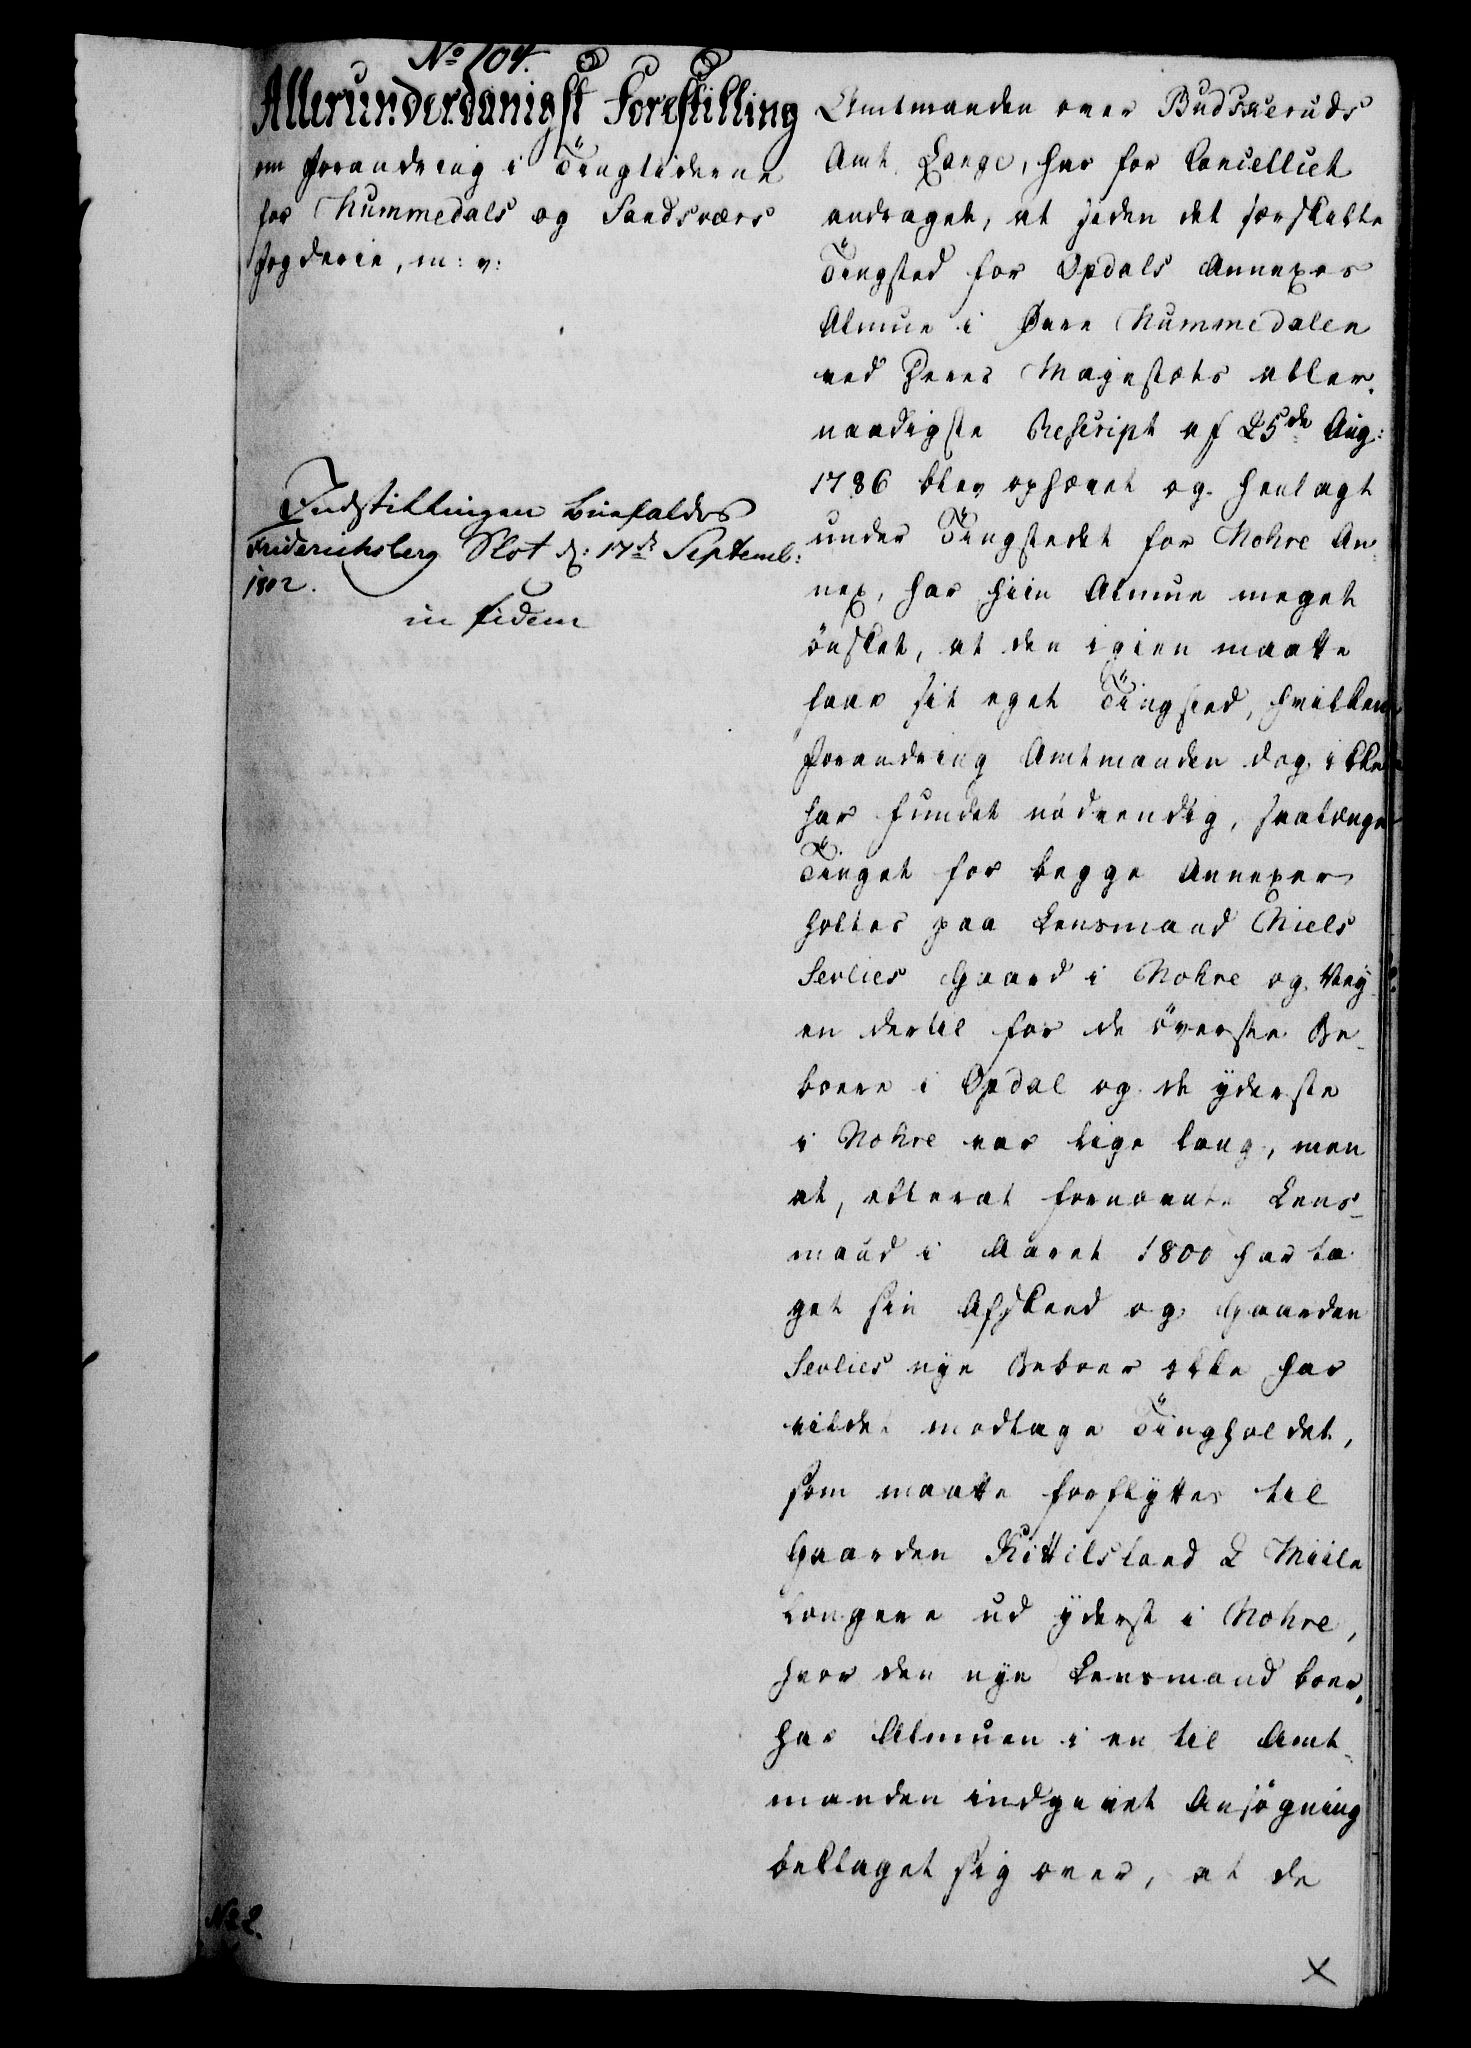 No 104.
Allerunderdanigst Forestilling
om Forandring i Tingtiderne
for Nummedals og Sandsværs
Fogderie, m: v:
Indstillingen biefaldes
Friderichsberg Slot d: 17de Septemb:
1802.
in fidem
Amtmanden over Budskeruds
Amt Lange, har for Cancelliet
andraget, at siden det særskilte
Tingsted for Opdals Annexes
Almue i Øvre Nummedalen
ved Deres Majestæts aller-
naadigste Rescript af 25de Aug:
1786 blev ophævet og henlagt
under Tingstedet for Nohre An-
nex, har hiin Almue meget
ønsket, at den igien maatte
faae sit eget Tingsted, hvilken
Forandring Amtmanden dog ikke
har fundet nødvendig, saalænge
Tinget for begge Annexer
holtes paa Lensmand Niels
Sevlies Gaard i Nohre og Vey-
en dertil for de øverste Be-
boere i Opdal og de yderste
i Nohre var lige lang, men
at, efterat fornævnte Lens-
mand i Aaret 1800 har ta-
get sin Afskeed og Gaarden
Sevlies nye Beboer ikke har
vildet modtage Tingholdet,
som maatte forflyttes til
Gaarden Kittilsland 2 Miile
længere ud yderst i Nohre,
hvor den nye Lensmand boer,
har Almuen i en til Amt-
manden indgivet Ansøgning
beklaget sig over, at de